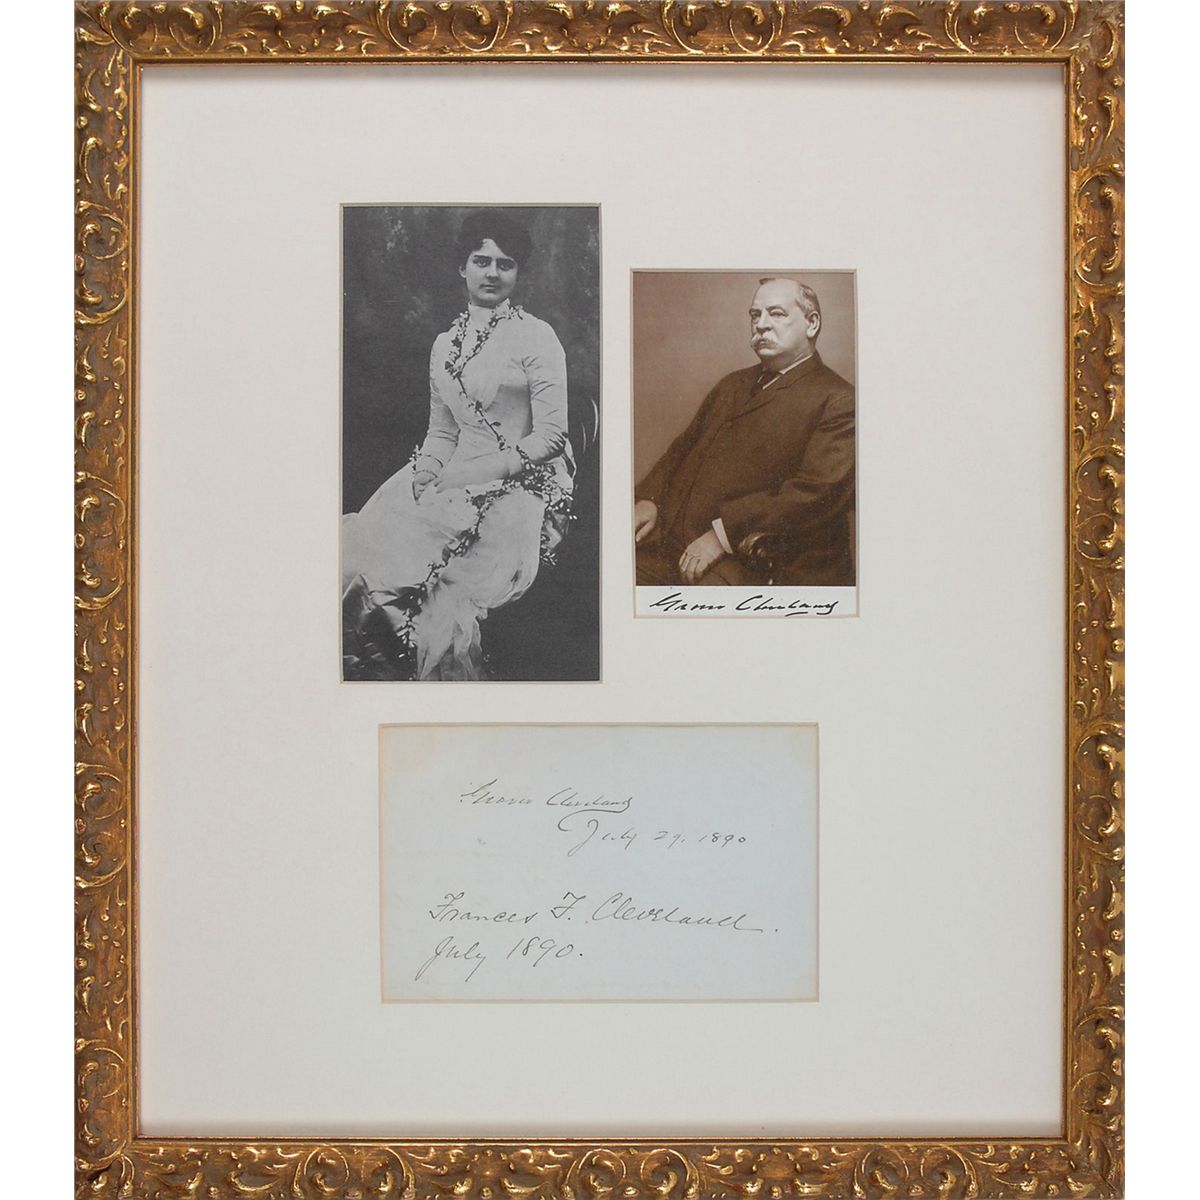 Grover Cleveland
Grover Cleveland
July 29, 1890
Frances F. Cleveland.
July 1890.